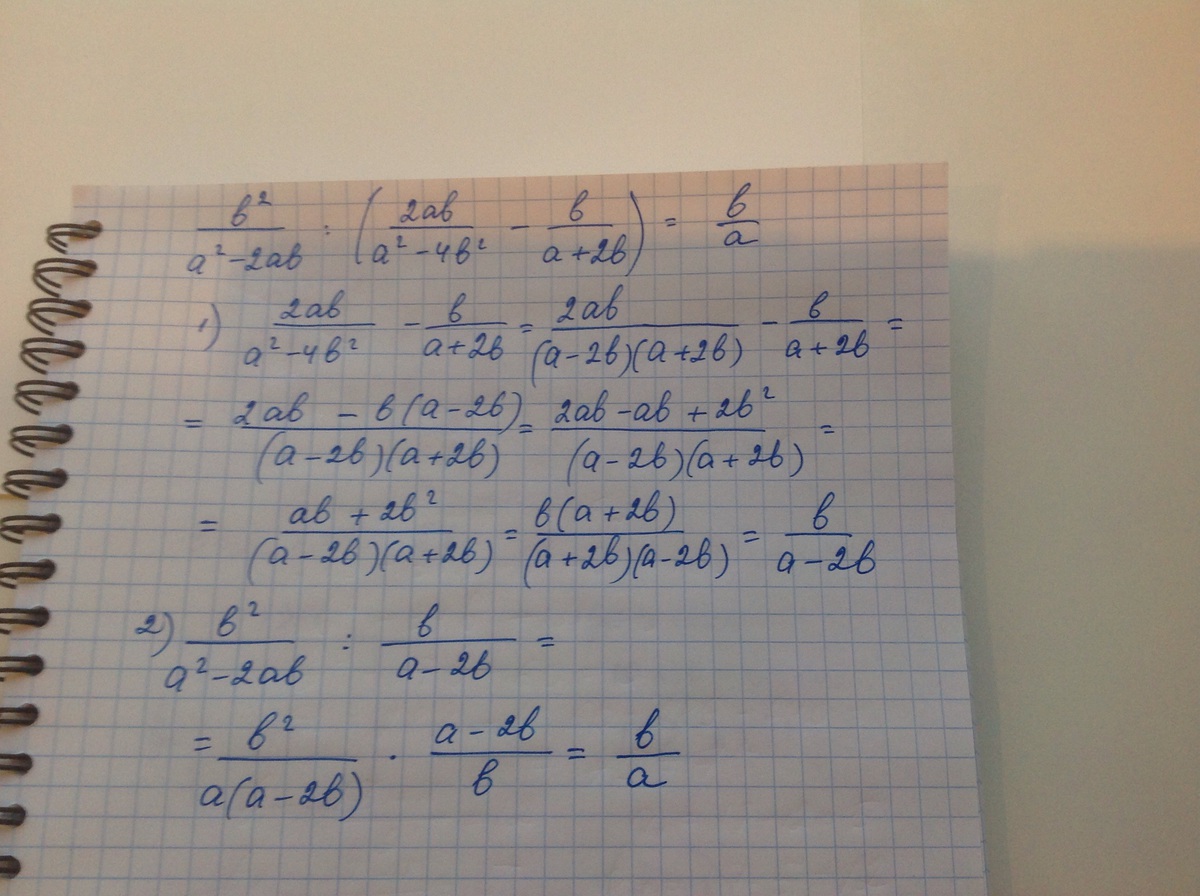 b²/(a²-2ab) : (2ab/(a²-4b²) - b/(a+2b)) = b/a
1) 2ab/(a²-4b²) - b/(a+2b) = 2ab/((a-2b)(a+2b)) - b/(a+2b) =
= (2ab - b(a-2b))/((a-2b)(a+2b)) = (2ab-ab+2b²)/((a-2b)(a+2b)) =
= (ab+2b²)/((a-2b)(a+2b)) = b(a+2b)/((a+2b)(a-2b)) = b/(a-2b)
2) b²/(a²-2ab) : b/(a-2b) =
= b²/(a(a-2b)) · (a-2b)/b = b/a